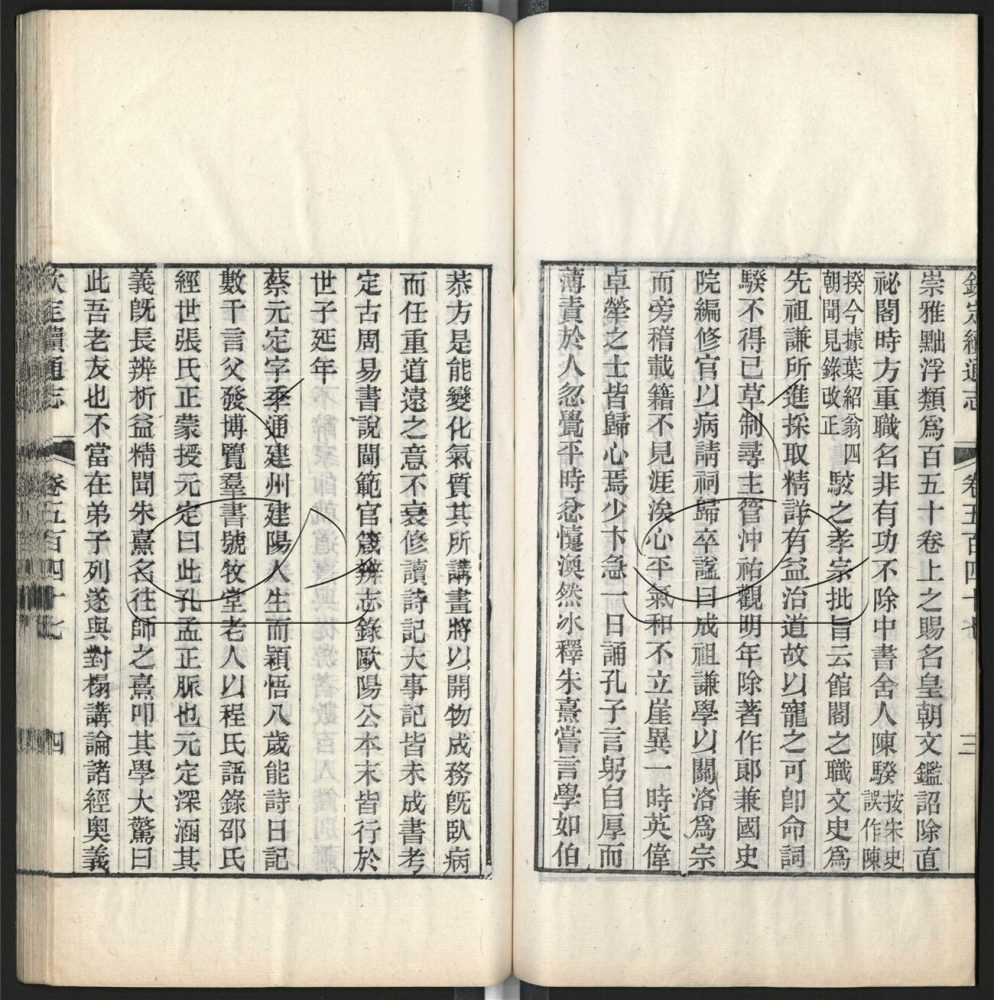 欽定續通志 卷五百四十七 三
崇雅黜浮類爲百五十卷上之賜名皇朝文鑑詔除直
祕閣時方重職名非有功不除中書舍人陳騤按宋史誤作陳
揆今據葉紹翁四朝聞見錄改正駮之孝宗批旨云館閣之職文史爲
先祖謙所進採取精詳有益治道故以寵之可卽命詞
騤不得已草制尋主管沖祐觀明年除著作郞兼國史
院編修官以病請祠歸卒諡曰成祖謙學以關洛爲宗
而旁稽載籍不見涯涘心平氣和不立崖異一時英偉
卓犖之士皆歸心焉少卞急一日誦孔子言躬自厚而
薄責於人忽覺平時忿懥渙然冰釋朱熹嘗言學如伯
恭方是能變化氣質其所講畫將以開物成務旣臥病
而任重道遠之意不衰修讀詩記大事記皆未成書考
定古周易書說閫範官箴辨志錄歐陽公本末皆行於
世子延年
蔡元定字季通建州建陽人生而穎悟八歲能詩日記
數千言父發博覽羣書號牧堂老人以程氏語錄邵氏
經世張氏正蒙授元定曰此孔孟正脈也元定深涵其
義旣長辨析益精聞朱熹名往師之熹叩其學大驚曰
此吾老友也不當在弟子列遂與對榻講論諸經奧義
欽定續通志 卷五百四十七 四